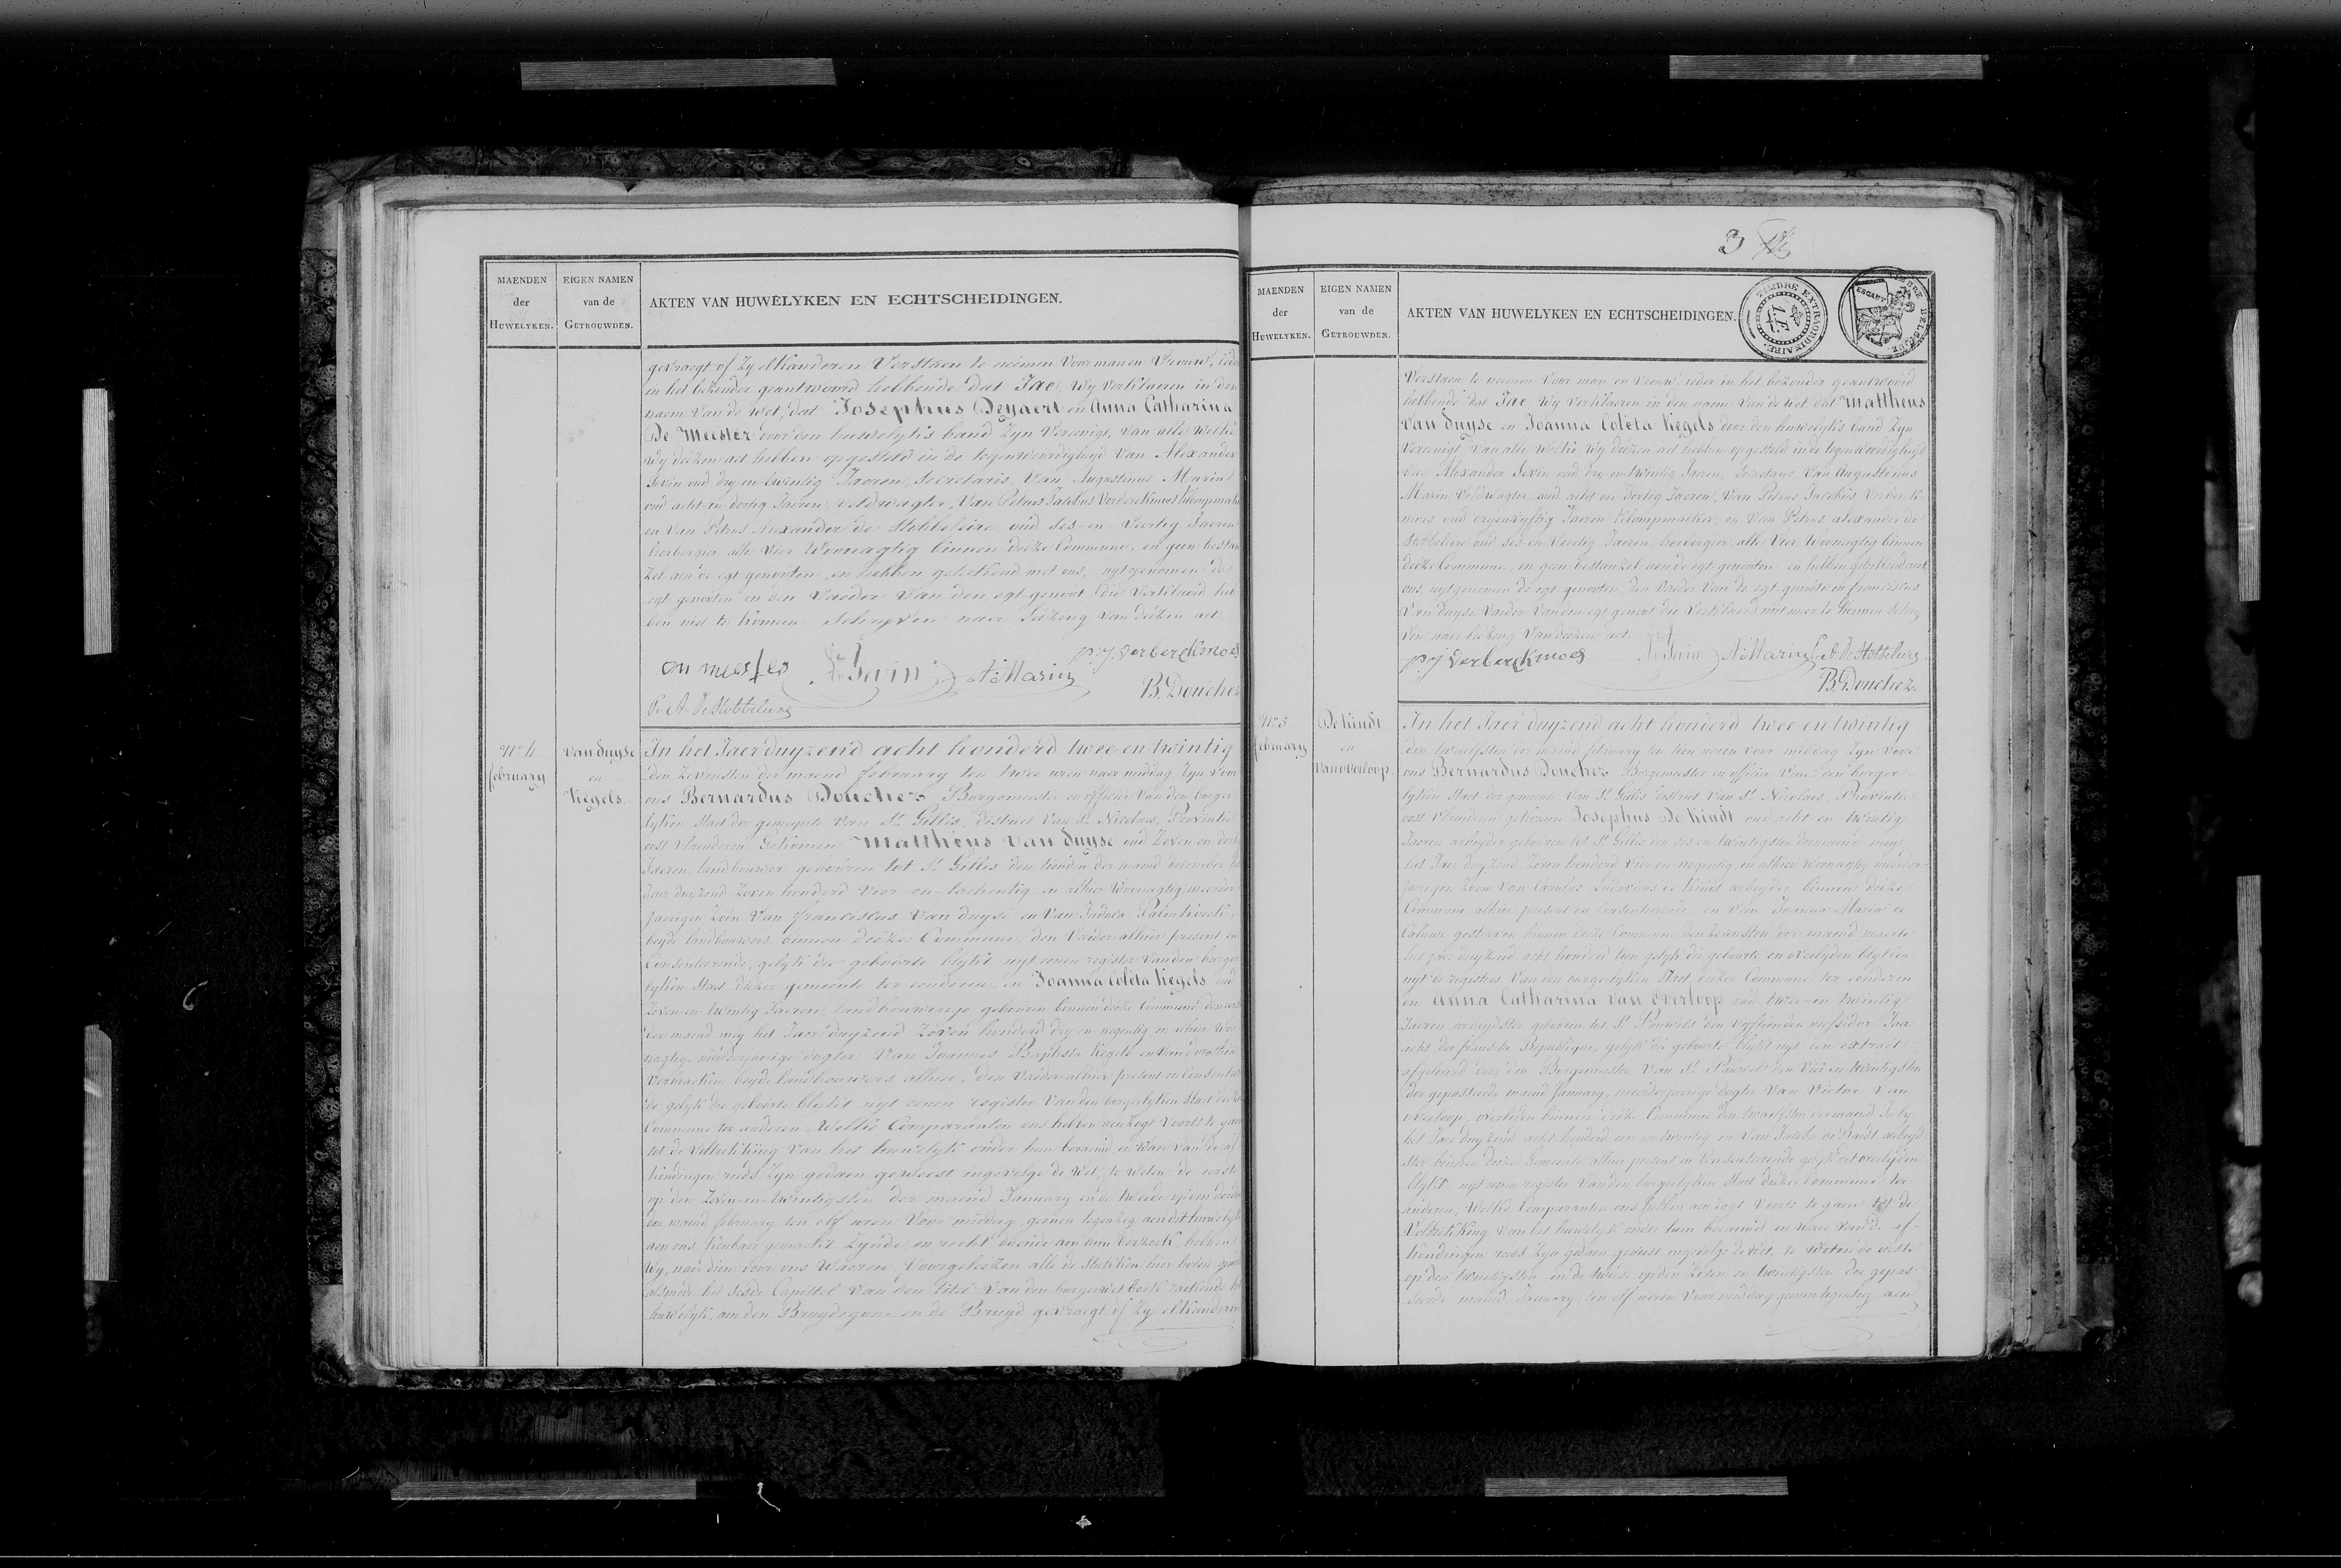 MAENDEN
der
HUWELYKEN.
EIGEN NAMEN
van de
GETROUWDEN.
AKTEN VAN HUWELYKEN EN ECHTSCHEIDINGEN.
gevraegt of Zy elkanderen Verstaen te neemen Voor man en Vrouw,
in het bezonder geantwoord hebbende dat Jae, Wy verklaeren in den
naem Van de Wet, dat Josephus Deyaert en Anna Catharina
De Meester door den huwelyks band Zyn Vereenigt, Van alle Welke
Wy deézen act hebben opgesteld in de tegenwoordigheyd Van Alexander
Sevin oud dry-en-twintig Jaeren, Secretaris, Van Augustinus Marin
oud acht-en-dertig Jaeren, veldwagter, Van Petrus Jacobus Verberckmoes
en Van Petrus Alexander de oud ses-en-Veertig Jaeren
herbergier alle Vier Woonagtig binnen deéze Commune, en geen
Zel aen de egt-genooten, en hebben geteekend met ons, uytgenomen de
egt-genooten en den Vaeder Van den egt-genoot die Verklaerd heb
ben niet te konnen Schryven naer Lezing Van deézen act.
on meester A. Sevin A. Marin p:j verberckmoes
P. A. De Stobbeleire B. Douchez
No 4.
february
Van duyse
en
Kegels.
In het Jaer duyzend acht honderd twee-en-twintig
den Zevensten der maend february ten twee uren naer middag Zyn Voor
ons Bernardus Douchez Borgemeester en officier Van den burger
lyken Staet der gemeynte Van St Gillis, district Van St Nicolaes, Provintie
oost Vlaenderen Gekomen Mattheus Van duyse oud Zeven-en-dertig
Jaeren, landbouwer, gebooren tot St Gillis den tienden der maend december
Jaer duyzend Zeven honderd Vier-en-tachentig en alhier Woonagtig, meerder
jaerigen Zoon Van franciscus Van duyse en Van Judoca
beyde landbouwers binnen deéze Commune, den Vaeder alhier present en
Consenteerende, gelyk die geboorte blykt uyt eenen register Van den burger
lyken Staet deézer gemeente ten eenderen, en Joanna Coleta Kegels oud
Zeven-en-twintig Jaeren, landbouwerige gebooren binnen deéze Commune den
der maend mey het Jaer duyzend Zeven honderd dry en negentig en alhier Woo
nagtig, meerderjaerige dogter Van Joannes Baptista Kegels en Van dorothea
Verbraeken beyde landbouwers alhier, den Vaeder alhier present en Consenteeren
de gelyk die geboorte blykt uyt eenen register Van den borgerlyken Staet deézer
Commune ter anderen. Welke Comparanten ons hebben aenzogt Voorts te gaen
tot de Voltrekking Van het huwelyk onder hun beraemd en Waer Van de af
kondingen reeds Zyn gedaen geweest ingevolge de Wet, te Weten: de eerste
op den Zeven-en-twintigsten der maend January en de tweede op den derden
der maend february ten elf uren Voor middag, geenen tegenzeg aen dit huwelyk
aen ons kenbaer gemaekt Zynde, en recht doende aen hun Verzoek, hebben
Wy, naer dien door ons Waeren Voorgelezen alle de stukken hier boven
alsmede het Sesde Capittel Van den titel Van den burgerwet boek raekende
huwelyk, aen den Bruydegom en de Bruyd gevraegt of Zy elkanderen
3
MAENDEN
der
HUWELYKEN.
EIGEN NAMEN
van de
GETROUWDEN.
AKTEN VAN HUWELYKEN EN ECHTSCHEIDINGEN.
TIMBRE EXTRAORDINAIRE
ESCAUT
Verstaen te neemen Voor man en Vrouw, ieder in het bezonder geantwoord
hebbende dat Jae, Wy Verklaeren in den naem Van de Wet dat Mattheus
Van duyse en Joanna Coleta Kegels door den huwelyks band Zyn
Vereenigt, Van alle Welke Wy deézen act hebben opgesteld in de tegenwoordigheyd
Van Alexander Sevin oud dry-en-twintig Jaeren, Secretaris Van Augustinus
Marin Veldwagter, oud acht-en-dertig Jaeren, Van Petrus Jacobus Verberck
moes oud Jaeren Klompmaeker, en Van Petrus alexander de
oud ses-en-Veertig Jaeren, herbergier, alle Vier Woonagtig binnen
deéze Commune, en geen bestaenzel aen de egt-genooten, en hebben geteekend met
ons, uytgenomen de egt-genooten, den Vaeder Van de egt genoote en franciscus
Van duyse Vaeder Van den egt genoot die Verklaerd niet te konnen Schry
ven naer lezing Van deézen act.
p:j verberckmoes A. Sevin A. Marin P. A. De Stobbeleire
B. Douchez.
No 5
february
De Kindt
en
Van overloop.
In het Jaer duyzend acht honderd twee-en-twintig
den twaelfsten der maend february ten tien uren voor middag Zyn Voor
ons Bernardus Douchez Borgemeester en officier Van den burger
lyken Staet der gemeente Van St Gillis district Van St Nicolaes, Provintie
oost Vlaenderen gekomen Josephus De Kindt oud acht en twintig
Jaeren arbeyder gebooren tot St Gillis den ses en twintigsten der maend mey
het Jaer duyzend Zeven honderd en alhier woonagtig meerder
jaerigen Zoon Van Carolus Ludovicus de Kindt arbeyder binnen deéze
Commune alhier present en Consenteerende, en Van Joanna Maria de
gestorven binnen deéze Commune den Zevensten der maend maerte
het jaer duyzend acht honderd gelyk die geboorte en overlyden blyken
uyt de registers Van den burgerlyken Staet deézer Commune ter eenderen
en Anna Catharina Van Overloop oud twee-en-twintig
Jaeren arbeydster gebooren tot St Pauwels den Jaer
acht der fransche Republique, gelyk die geboorte blykt uyt een extract
afgeleverd door den Borgemeester Van St Pauwels den Vier-en-twintigsten
der gepasseerde maend January, meerderjaerige dogter Van Victor Van
overloop, overleden binnen deéze Commune den twaelfsten der maend July
het Jaer duyzend acht honderd een en twintig en Van Jacoba de arbeyd
ster binnen deéze gemeente alhier present en Consenteerende gelyk dit overlyden
blykt uyt eenen register Van den burgerlyken Staet deézer Commune ter
anderen, Welke Comparanten ons hebben aenzogt Voorts te gaen tot de
Voltrekking Van het huwelyk onder hun beraemd en Waer Van de af-
kondingen reeds Zyn gedaen geweest ingevolge de Wet, te Weten: de eerste
op den twintigsten en de tweede op den Zeven-en-twintigsten der gepas
seerde maend January ten elf uren Voor middag geenen tegenzeg aen